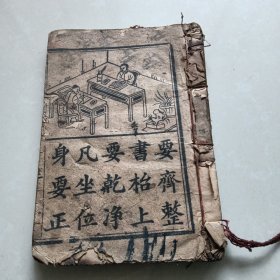 要齊整
書枱上
要乾净
凡坐位
身要正